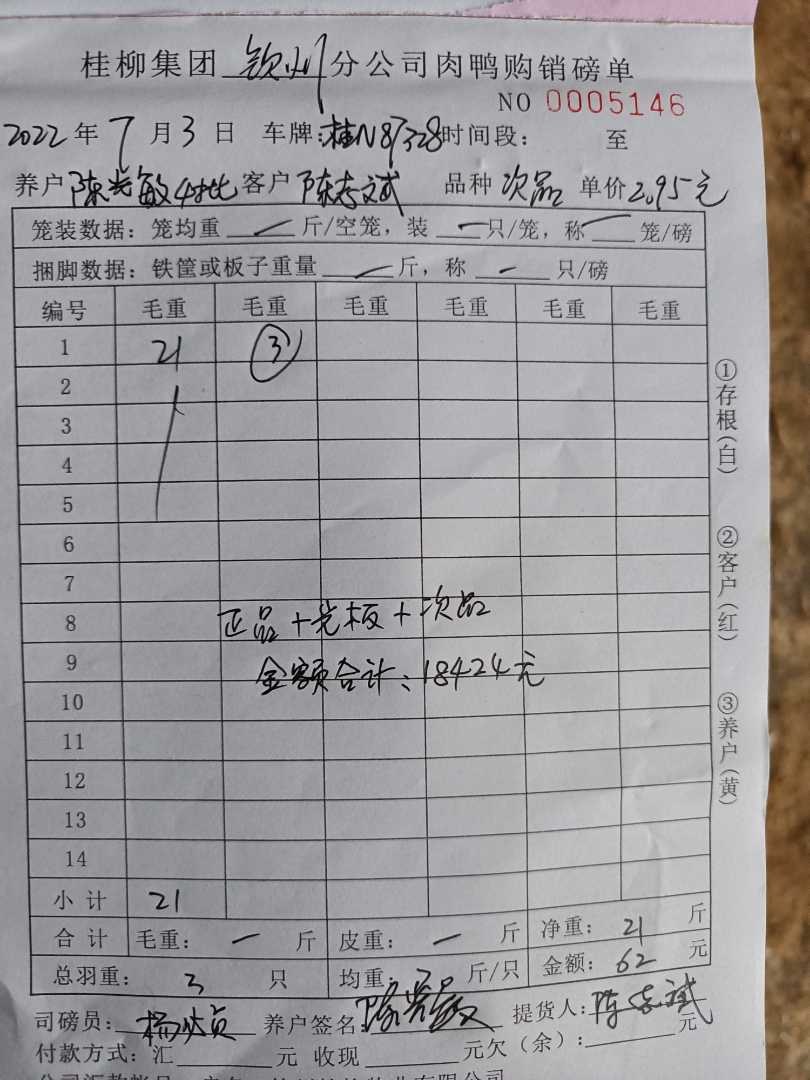 桂柳集团 钦州 分公司肉鸭购销磅单
NO 0005146
2022 年 7 月 3 日 车牌:桂N87328 时间段: 至
养户 陈光敏4批 客户 陈志斌 品种 次品 单价 2.95元
笼装数据: 笼均重 一 斤/空笼, 装 一 只/笼, 称 一 笼/磅
捆脚数据: 铁筐或板子重量 一 斤, 称 一 只/磅
编号 毛重 毛重 毛重 毛重 毛重 毛重
1 21 ③
2
3
4
5
6
7
8
正品+光板+次品
9
金额合计:18424元
10
11
12
13
14
小计 21
合计 毛重: 一 斤 皮重: 一 斤 净重: 21 斤
总羽重: 3 只 均重: 7 斤/只 金额: 62 元
司磅员: 养户签名 陈光敏 提货人: 陈志斌
付款方式: 汇 元 收现 元欠(余): 元
①存根(白)
②客户(红)
③养户(黄)